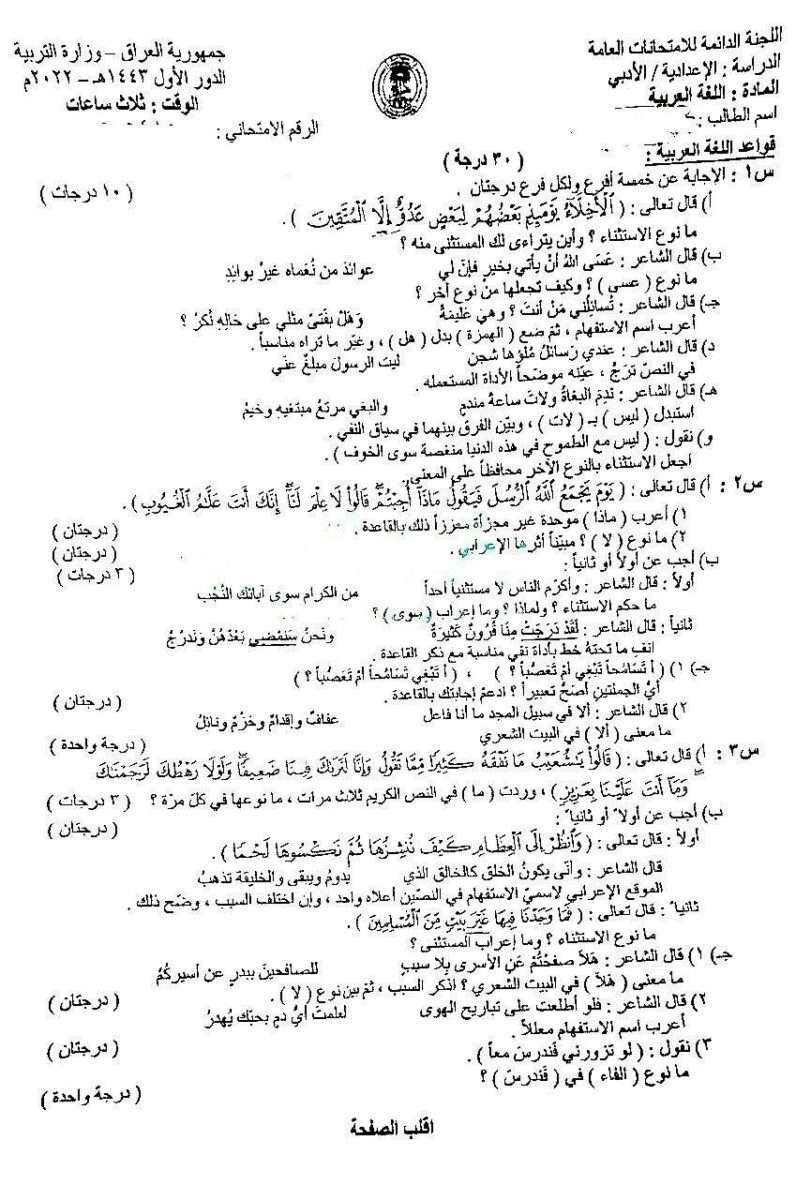 اللجنة الدائمة للامتحانات العامة
الدراسة : الإعدادية / الأدبي
المادة : اللغة العربية
اسم الطالب :
جمهورية العراق – وزارة التربية
الدور الأول ١٤٤٣هـ – ٢٠٢٢م
الوقت : ثلاث ساعات
الرقم الامتحاني :
قواعد اللغة العربية : ( ٣٠ درجة )
س١ : الإجابة عن خمسة أفرع ولكل فرع درجتان . ( ١٠ درجات )
أ) قال تعالى : ( الْأَخِلَّاءُ يَوْمَئِذٍ بَعْضُهُمْ لِبَعْضٍ عَدُوٌّ إِلَّا الْمُتَّقِينَ ) .
ما نوع الاستثناء ؟ وأين يتراءى لك المستثنى منه ؟
ب) قال الشاعر : عَسَى اللهُ أنْ يأتي بخيرٍ فإنّ لي عوائدَ من نُعماه غيرُ بوائدِ
ما نوع ( عسى ) ؟ وكيف تجعلها منْ نوع آخر ؟
جـ) قال الشاعر : تُسائلُني مَنْ أنتَ ؟ وهيَ عَليمَةٌ وَهَلْ بفَتىً مثلي على حَالِهِ نُكرُ ؟
أعرب اسم الاستفهام ، ثم ضع ( الهمزة ) بدل ( هل ) ، وغيّر ما تراه مناسباً .
د) قال الشاعر : عندي رَسائلُ مُلؤها شجن ليت الرسولَ مبلغٌ عنّي
في النصّ ترجٍّ ، عيّنه موضحاً الأداة المستعمله .
هـ) قال الشاعر : ندِمَ البغاةُ ولاتَ ساعةُ مندمٍ والبغي مرتعُ مبتغيهِ وخيمُ
استبدل ( ليس ) بـ ( لات ) ، وبيّن الفرق بينهما في سياق النفي .
و) نقول : ( ليس مع الطموح في هذه الدنيا منغصة سوى الخوف ) .
اجعل الاستثناء بالنوع الآخر محافظاً على المعنى .
س٢ : أ) قال تعالى : ( يَوْمَ يَجْمَعُ اللَّهُ الرُّسُلَ فَيَقُولُ مَاذَا أُجِبْتُمْ قَالُوا لَا عِلْمَ لَنَا إِنَّكَ أَنتَ عَلَّامُ الْغُيُوبِ ) .
١) أعرب ( ماذا ) موحدة غير مجزأة معززاً ذلك بالقاعدة . ( درجتان )
٢) ما نوع ( لا ) ؟ مبيّناً أثرها الإعرابي . ( درجتان )
ب) أجب عن أولاً أو ثانياً : ( ٣ درجات )
أولاً : قال الشاعر : وأكرَم الناس لا مستثنياً أحداً من الكرام سوى آبائك النُجُب
ما حكم الاستثناء ؟ ولماذا ؟ وما إعراب ( سوى ) ؟
ثانياً : قال الشاعر : لَقَدْ دَرَجَتْ مِنّا قُرونٌ كَثيرَةٌ ونَحنُ سَنَمْضي بَعْدَهُنْ وَنَدرُجُ
انفِ ما تحتهُ خط بأداة نفي مناسبة مع ذكر القاعدة .
جـ) ١) ( أ تَسَامُحاً تَبْغِي أمْ تَعَصُّباً ؟ ) ، ( أ تَبْغِي تَسَامُحاً أمْ تَعَصُّباً ؟ )
أيُّ الجملتينِ أصَحُّ تعبيراً ؟ ادعمْ إجابتك بالقاعدة . ( درجتان )
٢) قال الشاعر : ألا في سبيل المجد ما أنا فاعل عفافٌ وإقدامٌ وحَزْمٌ ونائِلُ
ما معنى ( ألا ) في البيت الشعري ( درجة واحدة )
س٣ : أ) قال تعالى : ( قَالُوا يَا شُعَيْبُ مَا نَفْقَهُ كَثِيرًا مِّمَّا تَقُولُ وَإِنَّا لَنَرَاكَ فِينَا ضَعِيفًا وَلَوْلَا رَهْطُكَ لَرَجَمْنَاكَ
وَمَا أَنتَ عَلَيْنَا بِعَزِيزٍ ) ، وردت ( ما ) في النص الكريم ثلاث مرات ، ما نوعها في كلّ مرّة ؟ ( ٣ درجات )
ب) أجب عن أولاً أو ثانياً : ( درجتان )
أولاً : قال تعالى : ( وَانظُرْ إِلَى الْعِظَامِ كَيْفَ نُنشِزُهَا ثُمَّ نَكْسُوهَا لَحْمًا ) .
قال الشاعر : وأنّى يكونُ الخلق كالخالق الذي يدومُ ويبقى والخليقة تذهبُ
الموقع الإعرابي لاسميّ الاستفهام في النصّين أعلاه واحد ، وإن اختلف السبب ، وضّح ذلك .
ثانياً : قال تعالى : ( فَمَا وَجَدْنَا فِيهَا غَيْرَ بَيْتٍ مِّنَ الْمُسْلِمِينَ ) .
ما نوع الاستثناء ؟ وما إعراب المستثنى ؟
جـ) ١) قال الشاعر : هَلاّ صفحْتُمْ عَنِ الأسرى بِلا سببٍ للصافحينَ ببدرٍ عن أسيركُمُ
ما معنى ( هَلاّ ) في البيت الشعري ؟ اذكر السبب ، ثمّ بين نوع ( لا ) . ( درجتان )
٢) قال الشاعر : فلو أطلعت على تباريح الهوى لعلمتَ أيُّ دمٍ بحبّك يُهدرُ
أعرب اسم الاستفهام معللاً . ( درجتان )
٣) نقول : ( لو تزورني فَندرسَ معاً ) .
ما نوع ( الفاء ) في ( فَندرسَ ) ؟ ( درجة واحدة )
اقلب الصفحة